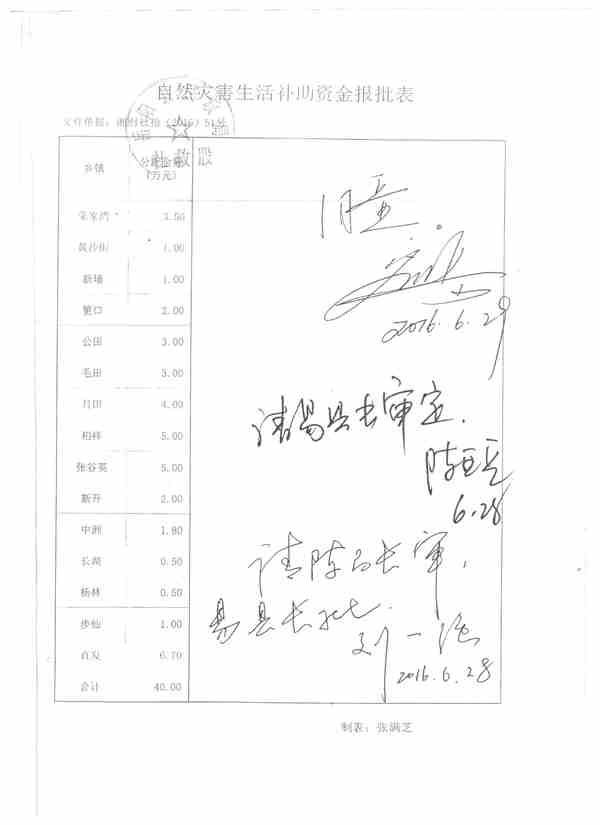 自然灾害生活补助资金报批表
文件依据：湘财社指（2016）51号
乡镇 分配金额（万元）
荣家湾 3.50
黄沙街 1.00
新墙 1.00
筻口 2.00
公田 3.00
毛田 3.00
月田 4.00
柏祥 5.00
张谷英 5.00
新开 2.00
中洲 1.80
长湖 0.50
杨林 0.50
步仙 1.00
直发 6.70
合计 40.00
同意.
2016.6.29
请易县长审定.
陈亚兵
6.28
请陈局长审，
易县长批.
刘一
2016.6.28
制表：张满芝